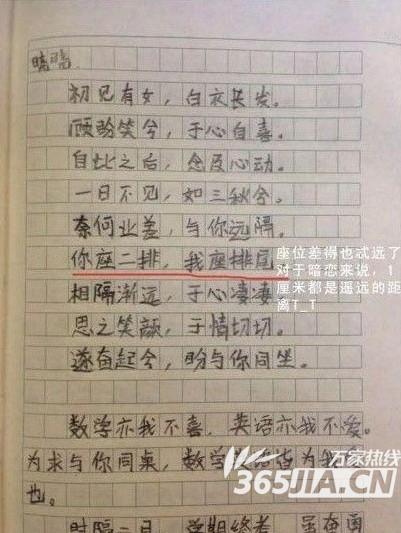 晴晴
初见有女，白衣长发。
顾盼笑兮，于心自喜。
自此之后，念及心动。
一日不见，如三秋兮。
奈何业差，与你远隔。
你座二排，我座排尾
座位差得也忒远了
对于暗恋来说，1
厘米都是遥远的距
离T_T
相隔渐远，于心凄凄
思之笑颜，于情切切。
遂奋起兮，盼与你同坐。
数学亦我不喜，英语亦我不爱。
为求与你同桌，数学 皆为我
也。
时隔二日，学期终考，虽奋勇
万家热线
365JIA.CN